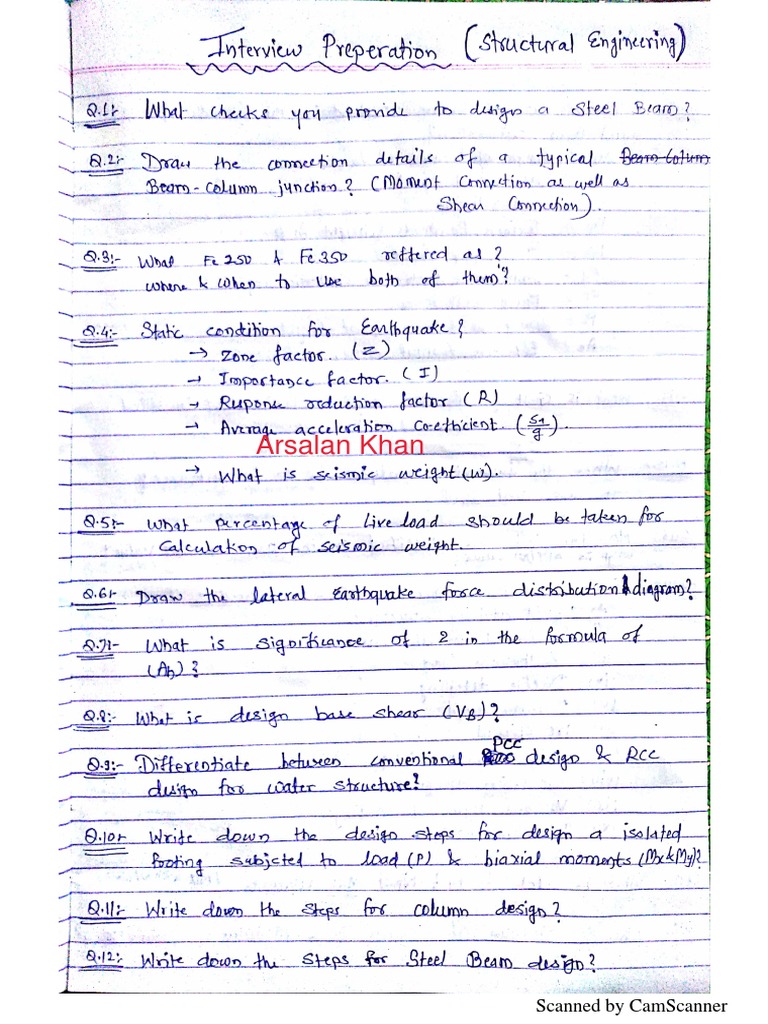 Interview Preperation (Structural Engineering)
Q.1:- What checks you provide to design a Steel Beam?
Q.2:- Draw the connection details of a typical Beam-Colum
Beam-column junction? (Moment Connection as well as
Shear Connection).
Q.3:- What Fe 250 & Fe 350 reffered as?
where & when to use both of them?
Q.4:- Static condition for Earthquake?
→ Zone factor. (Z)
→ Importance factor. (I)
→ Response reduction factor (R)
→ Average acceleration coefficient. (Sa/g).
Arsalan Khan
→ What is seismic weight (W).
Q.5:- What percentage of live load should be taken for
calculation of seismic weight.
Q.6:- Draw the lateral Earthquake force distribution diagram?
Q.7:- What is significance of 2 in the formula of
(Ah)?
Q.8:- What is design base shear (VB)?
Q.9:- Differentiate between conventional PCC design & RCC
design for water structure?
Q.10:- Write down the design steps for design a isolated
footing subjcted to load (P) & biaxial moments (Mx & My)?
Q.11:- Write down the steps for column design?
Q.12:- Write down the steps for Steel Beam design?
Scanned by CamScanner